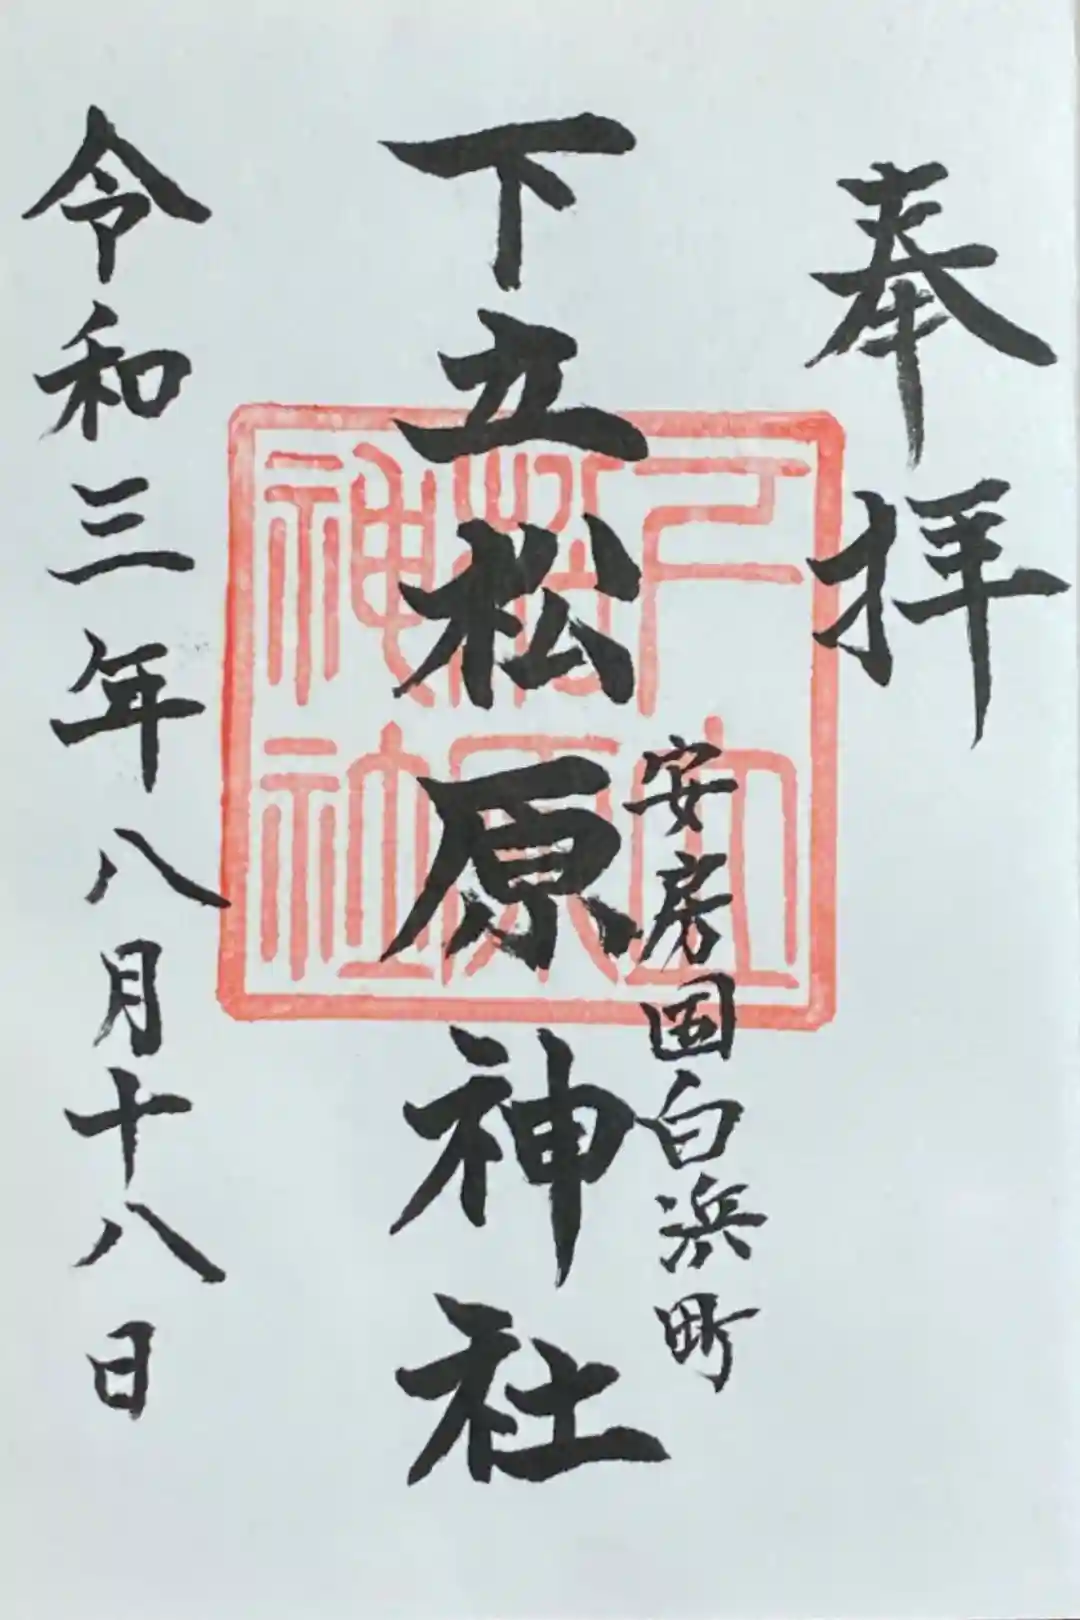 奉拝
安房国白浜町
下立松原神社
下立松原神社
令和三年八月十八日